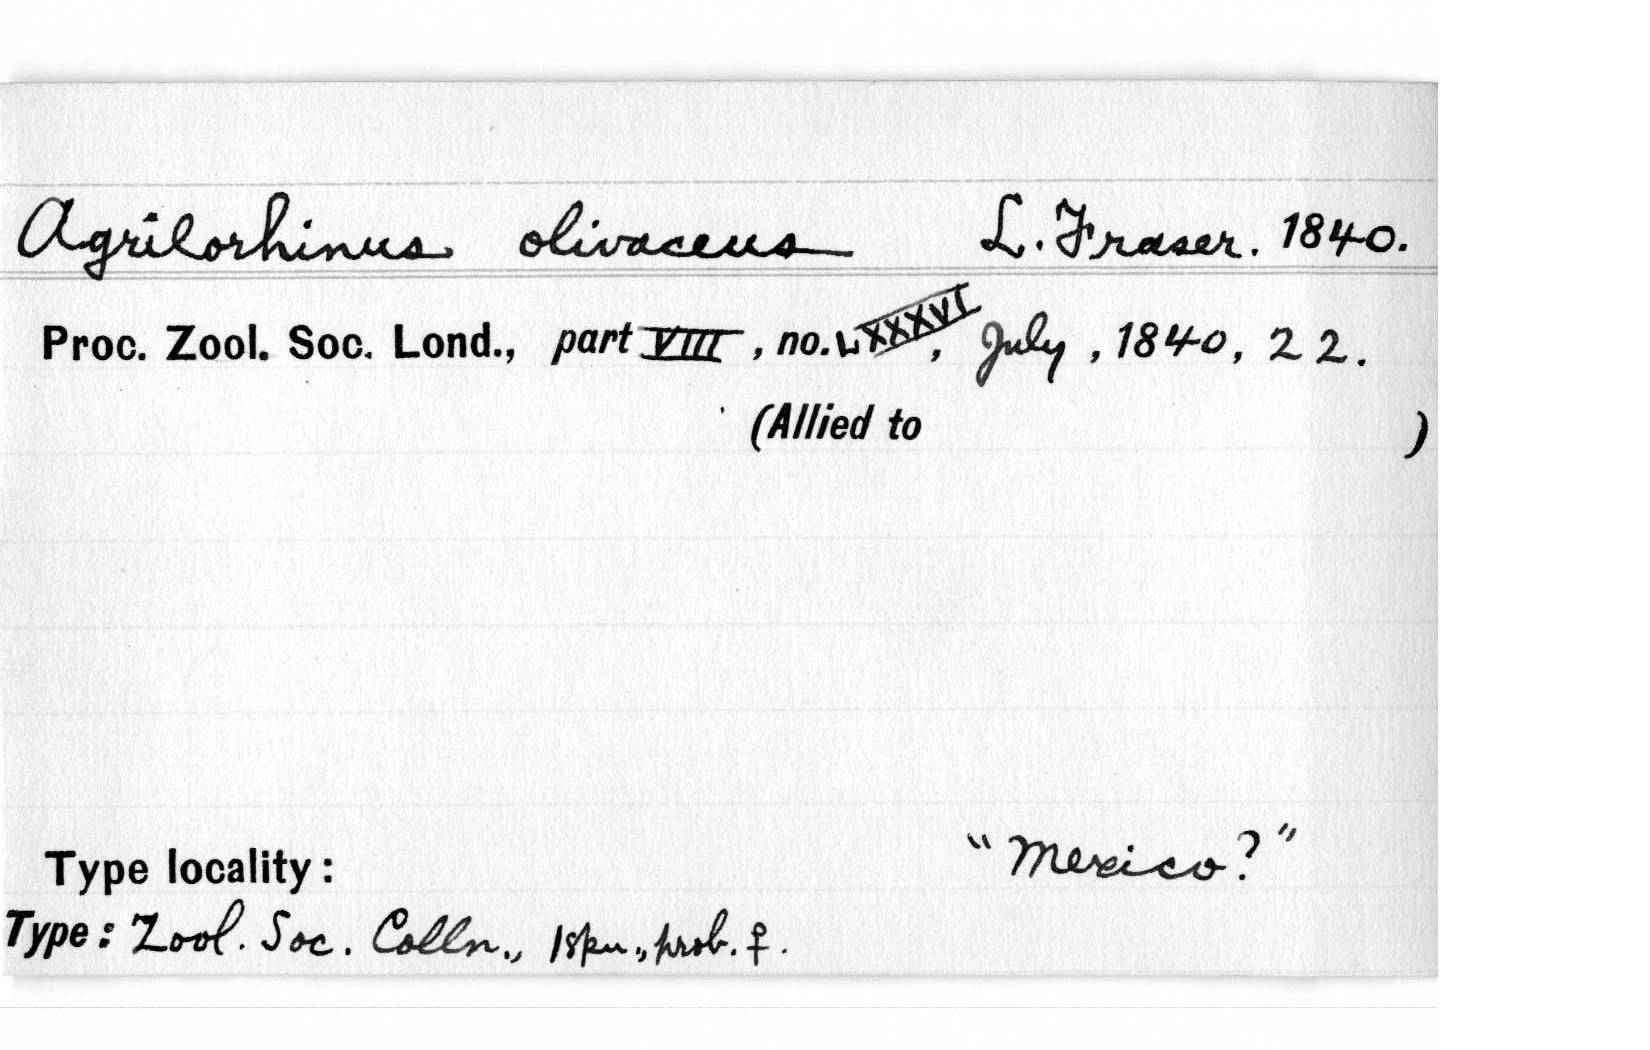 Agrilorhinus olivaceus L. Fraser. 1840.
Proc. Zool. Soc. Lond., part VIII, no. LXXXVI, July, 1840, 22.
(Allied to )
Type locality: "Mexico?"
Type: Zool. Soc. Colln., 1 spn., prob. ♀.